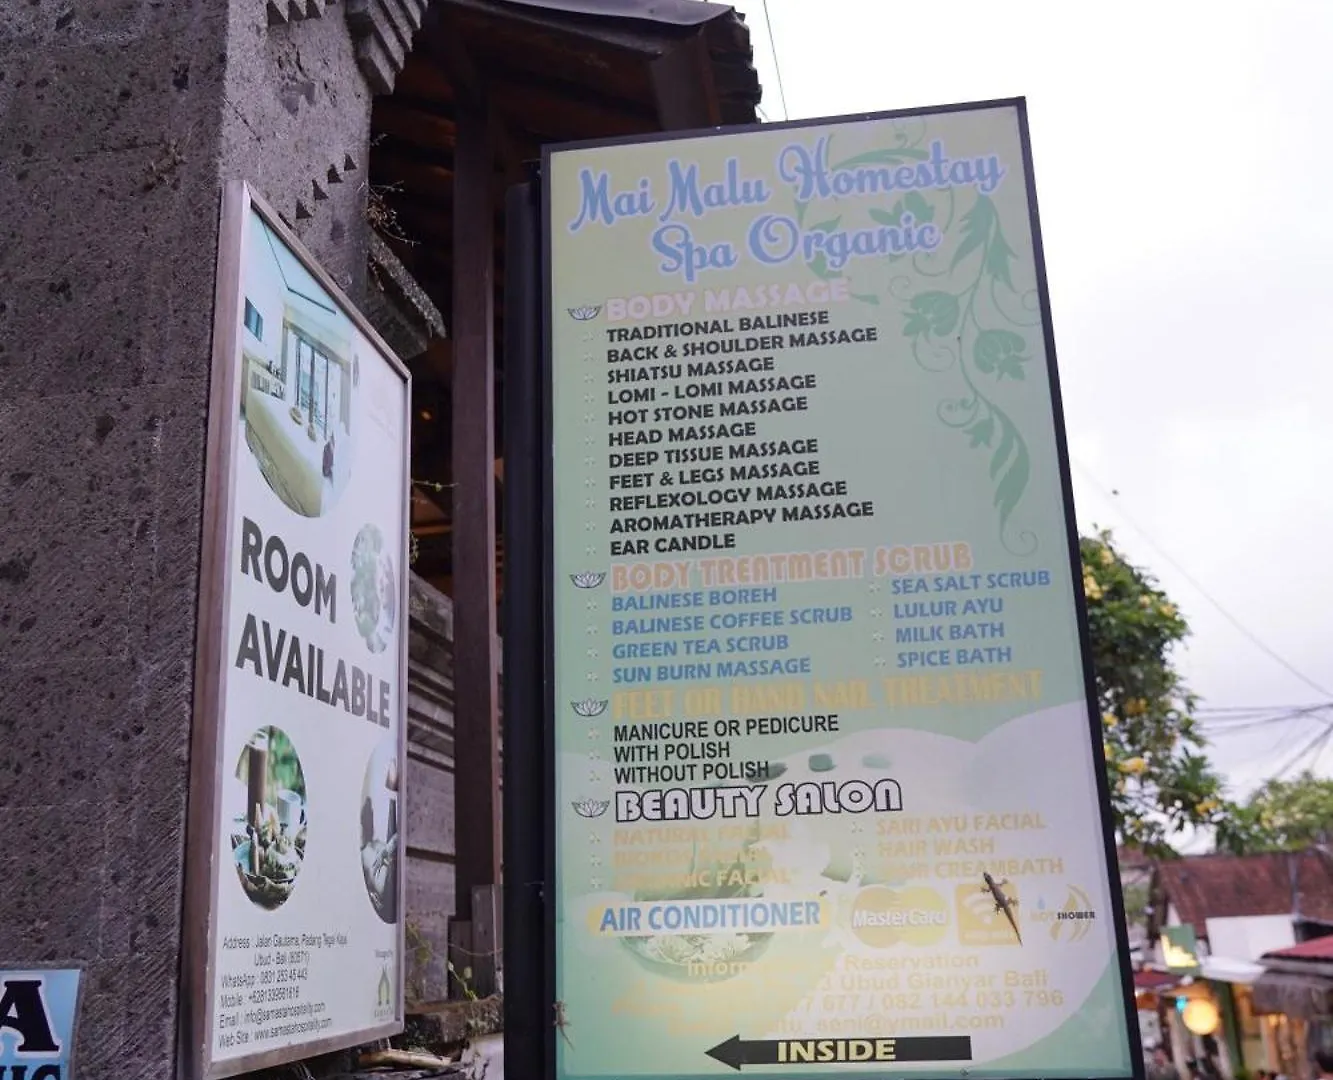 Mai Malu Homestay
Spa Organic
BODY MASSAGE
TRADITIONAL BALINESE
BACK & SHOULDER MASSAGE
SHIATSU MASSAGE
LOMI - LOMI MASSAGE
HOT STONE MASSAGE
HEAD MASSAGE
DEEP TISSUE MASSAGE
FEET & LEGS MASSAGE
REFLEXOLOGY MASSAGE
AROMATHERAPY MASSAGE
EAR CANDLE
BODY TREATMENT SCRUB
BALINESE BOREH
BALINESE COFFEE SCRUB
GREEN TEA SCRUB
SUN BURN MASSAGE
SEA SALT SCRUB
LULUR AYU
MILK BATH
SPICE BATH
FEET OR HAND NAIL TREATMENT
MANICURE OR PEDICURE
WITH POLISH
WITHOUT POLISH
BEAUTY SALON
NATURAL FACIAL
FACIAL
SARI AYU FACIAL
HAIR WASH
CREAMBATH
AIR CONDITIONER
MasterCard
HOT SHOWER
Reservation
Ubud Gianyar Bali
677 / 082 144 033 796
INSIDE
ROOM
AVAILABLE
Address : Jalan Gautama, Padang Tegal Kaja
Ubud - Bali (80571)
WhatsApp : 0831 253 45 443
Mobile : +6281339581818
Email : info@samastahospitality.com
Web Site : www.samastahospitality.com
A